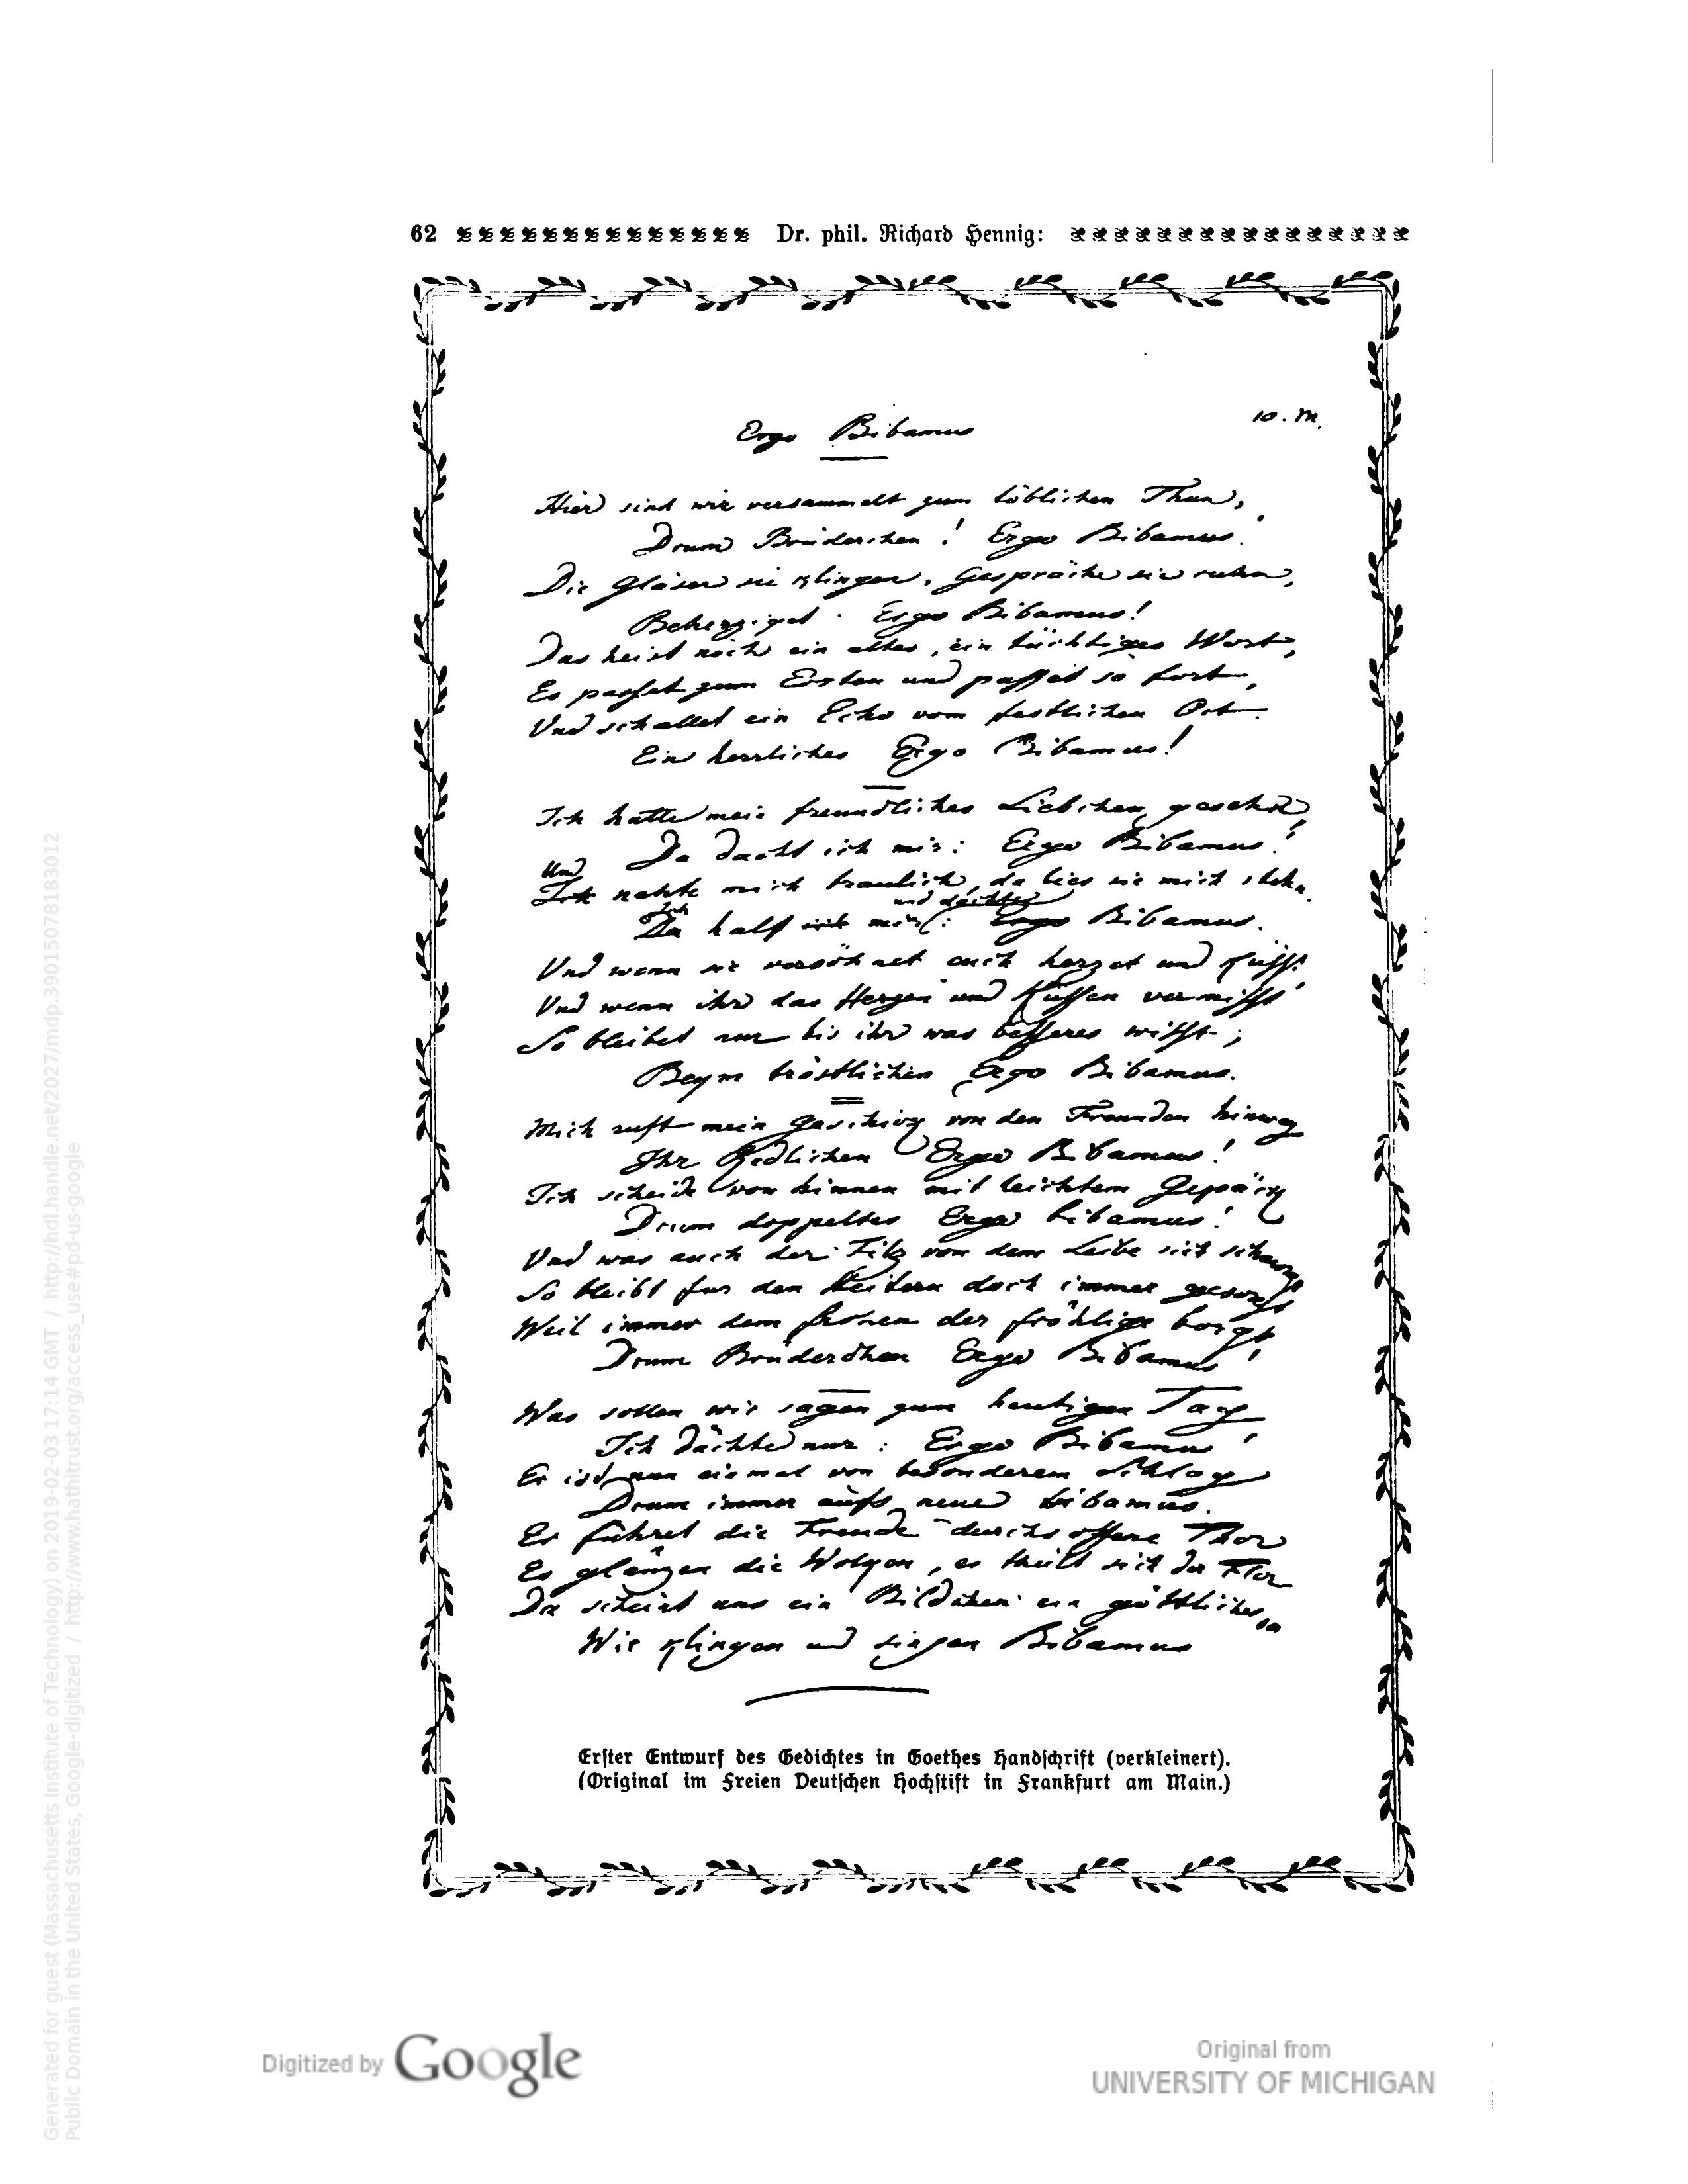 62 Dr. phil. Richard Hennig:
Ergo Bibamus
10. M.
Hier sind wir versammelt zum löblichen Thun,
Drum Brüderchen! Ergo Bibamus.
Die Gläser sie klingen, Gespräche sie ruhn,
Beherziget. Ergo Bibamus!
Das heist noch ein altes, ein tüchtiges Wort,
Es passet zum Ersten und passet so fort,
Und schallet ein Echo vom festlichen Ort
Ein herrliches Ergo Bibamus!
Ich hatte mein freundliches Liebchen gesehn
Da dacht ich mir: Ergo Bibamus!
Und
Ich nahte mich traulich, da lies sie mich stehn.
Ich und dachte
Da half ich mir: Ergo Bibamus.
Und wenn sie versöhnet euch herzet und küsst
Und wenn ihr das Herzen und Küssen vermisst
So bleibet nur bis ihr was besseres wisst;
Beym tröstlichen Ergo Bibamus.
Mich ruft mein Geschick von den Freunden hinweg
Ihr Redlichen Ergo Bibamus!
Ich scheide von hinnen mit leichtem Gepäck
Drum doppeltes Ergo bibamus!
Und was auch der Filz von dem Leibe sich schmorgt
So bleibt fur den Heitern doch immer gesorgt
Weil immer dem frohen der fröhlige borgt
Drum Brüderchen Ergo Bibamus!
Was sollen wir sagen zum heutigen Tag
Ich dächte nur: Ergo Bibamus!
Er ist nun einmal von besonderem Schlag
Drum immer aufs neue bibamus.
Er führet die Freude durchs offene Thor
Es glänzen die Wolken, es theilt sich der Flor
Da scheint uns ein Bildchen ein göttliches
Wir klingen und singen Bibamus
Erster Entwurf des Gedichtes in Goethes Handschrift (verkleinert).
(Original im Freien Deutschen Hochstift in Frankfurt am Main.)
Digitized by Google
Original from
UNIVERSITY OF MICHIGAN
Generated for guest (Massachusetts Institute of Technology) on 2019-02-03 17:14 GMT / http://hdl.handle.net/2027/mdp.39015078183012
Public Domain in the United States, Google-digitized / http://www.hathitrust.org/access_use#pd-us-google